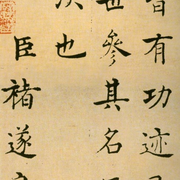 皆有功迹
世參其名
次也
臣褚遂